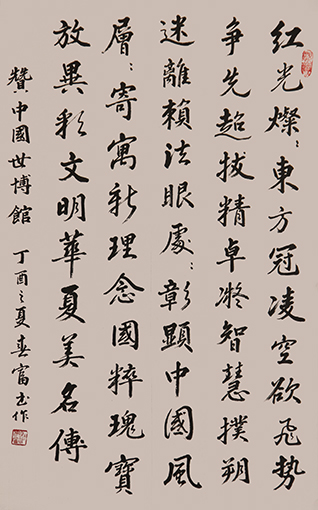 红光燦〻東方冠凌空欲飛势
争先超拔精卓凝智慧撲朔
迷離賴法眼處〻彰顯中國風
層〻寄寓新理念國粹瑰寶
放異彩文明華夏美名傳
贊中國世博館 丁酉之夏春富書作